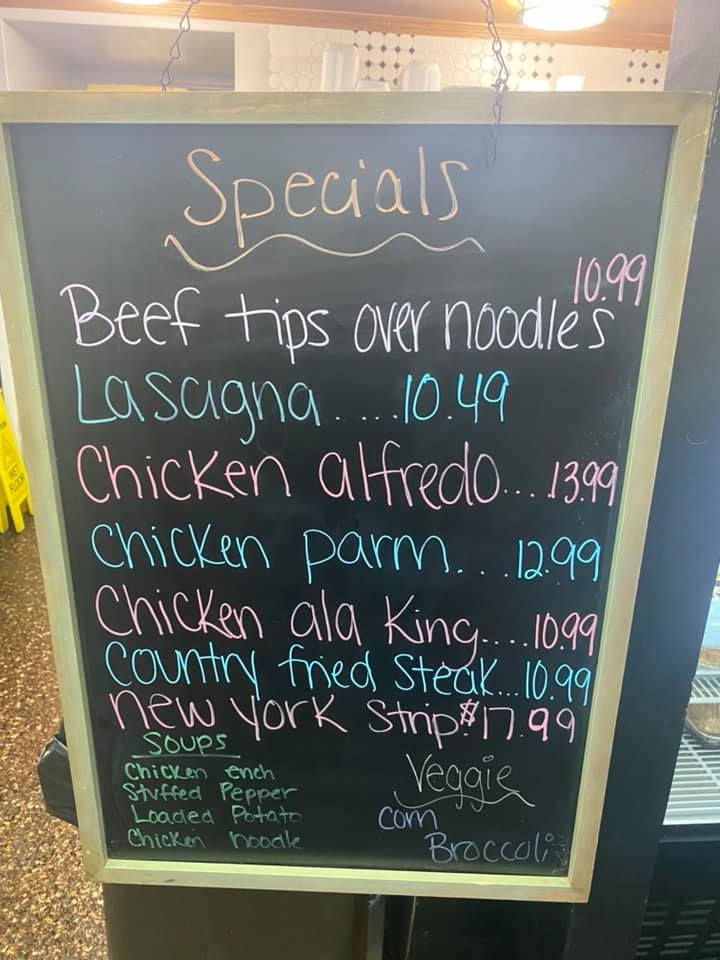 Specials
10.99
Beef tips over noodles
Lasagna.....10.49
Chicken alfredo....13.99
Chicken parm....12.99
Chicken ala King.....10.99
Country fried Steak...10.99
new york Strip $17.99
Soups
Chicken ench
Stuffed Pepper
Loaded Potato
Chicken noodle
Veggie
corn
Broccoli
WET
FLOOR